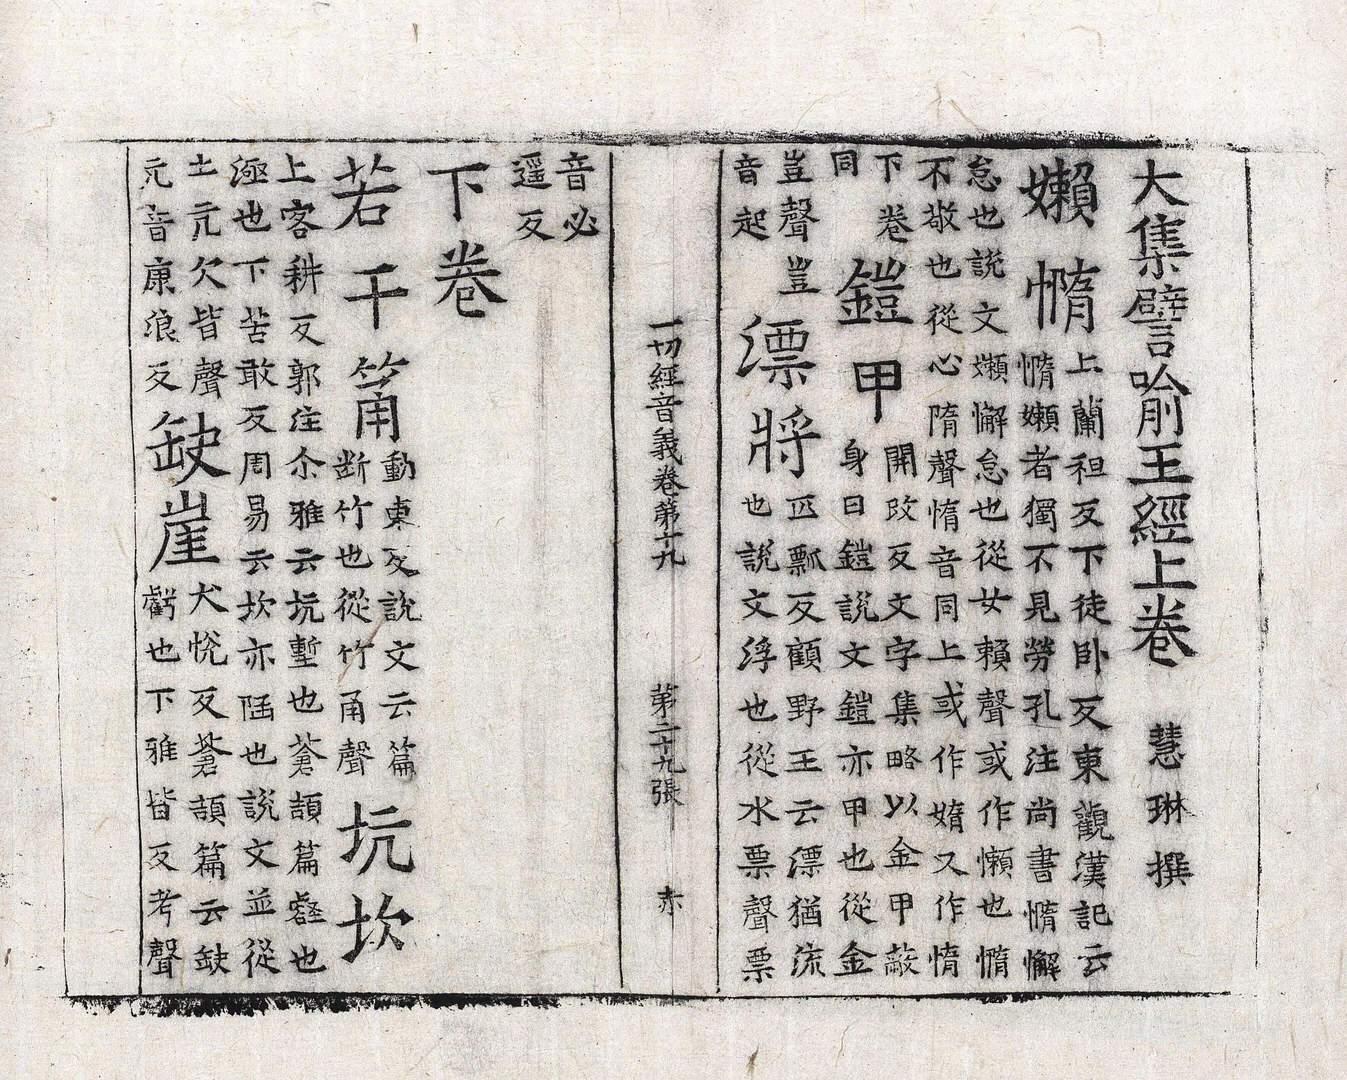 大集譬喻王經上卷 慧琳撰
嬾惰上蘭袒反下徒卧反東觀漢記云
惰嬾者獨不見勞孔注尚書惰懈
怠也說文嬾懈怠也從女賴聲或作懶也惰
不敬也從心隋聲惰音同上或作媠又作惰
下卷
同
鎧甲開改反文字集略以金甲蔽
身曰鎧說文鎧亦甲也從金
豈聲豈
音起
漂將匹瓢反顧野王云漂猶流
也說文浮也從水票聲票
一切經音義卷第十九 第二十九張 赤
音必
遥反
下卷
若千筩動東反說文云篇
斷竹也從竹甬聲
坑坎
上客耕反郭注尒雅云坑塹也蒼頡篇壑也
極也下苦敢反周易云坎亦陷也說文並從
土亢欠皆聲
亢音康浪反
缺崖犬悅反蒼頡篇云缺
虧也下雅皆反考聲